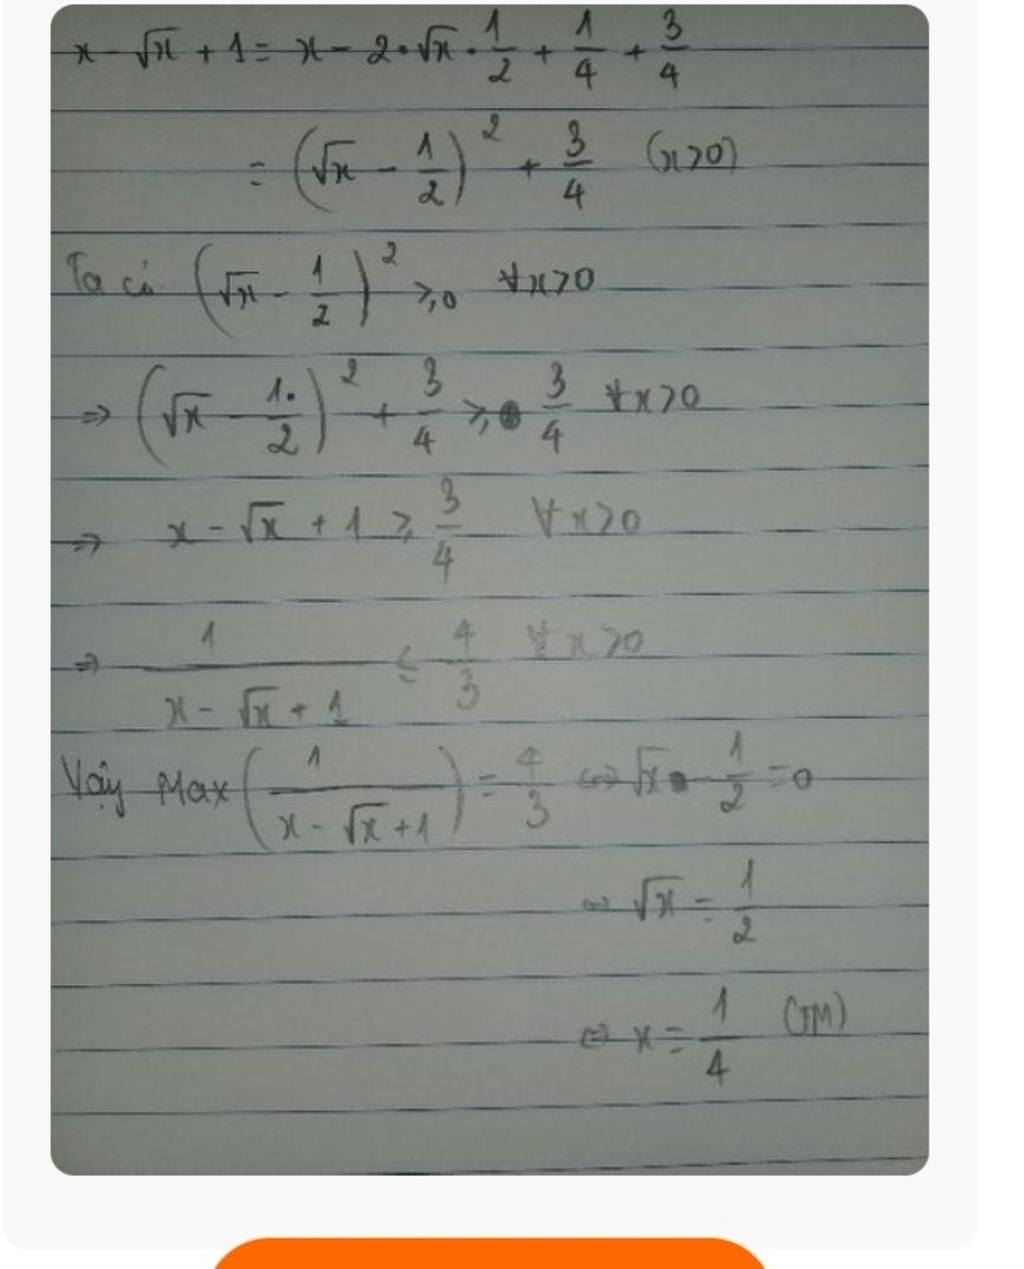 x - √x + 1 = x - 2.√x.1/2 + 1/4 + 3/4
= (√x - 1/2)² + 3/4 (x>0)
Ta có (√x - 1/2)² ≥ 0 ∀x>0
⇒ (√x - 1/2)² + 3/4 ≥ 3/4 ∀x>0
⇒ x - √x + 1 ≥ 3/4 ∀x>0
⇒ 1/(x - √x + 1) ≤ 4/3 ∀x>0
Vậy Max(1/(x - √x + 1)) = 4/3 ⇔ √x - 1/2 = 0
⇔ √x = 1/2
⇔ x = 1/4 (TM)